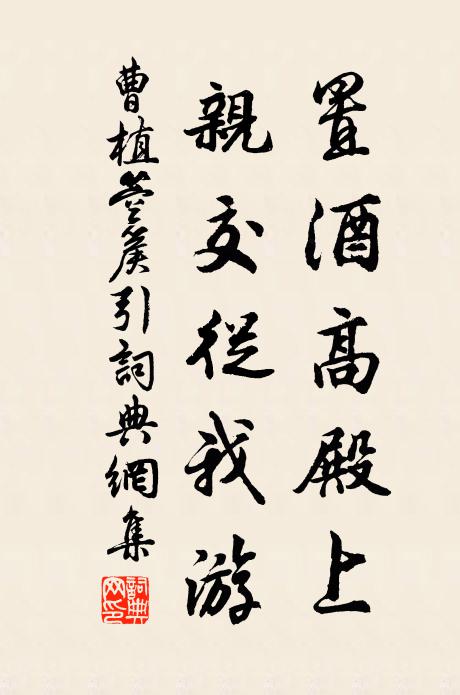 置酒高殿上
親交從我游
曹植箜篌引詞典網集
詞典網印